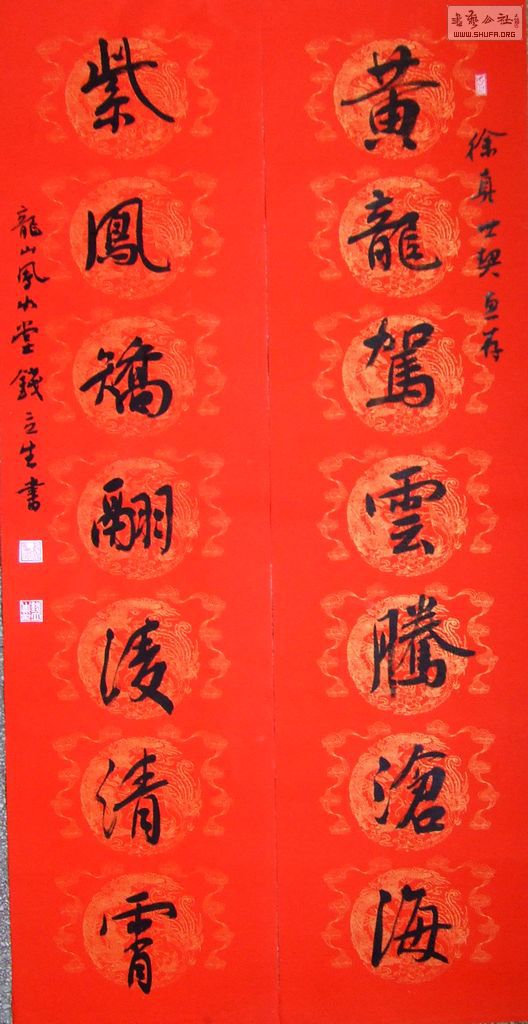 書藝公社
WWW.SHUFA.ORG
徐真士契惠存
黃龍駕雲騰滄海
紫鳳矯翮淩清霄
龍山鳳水堂錢立生書